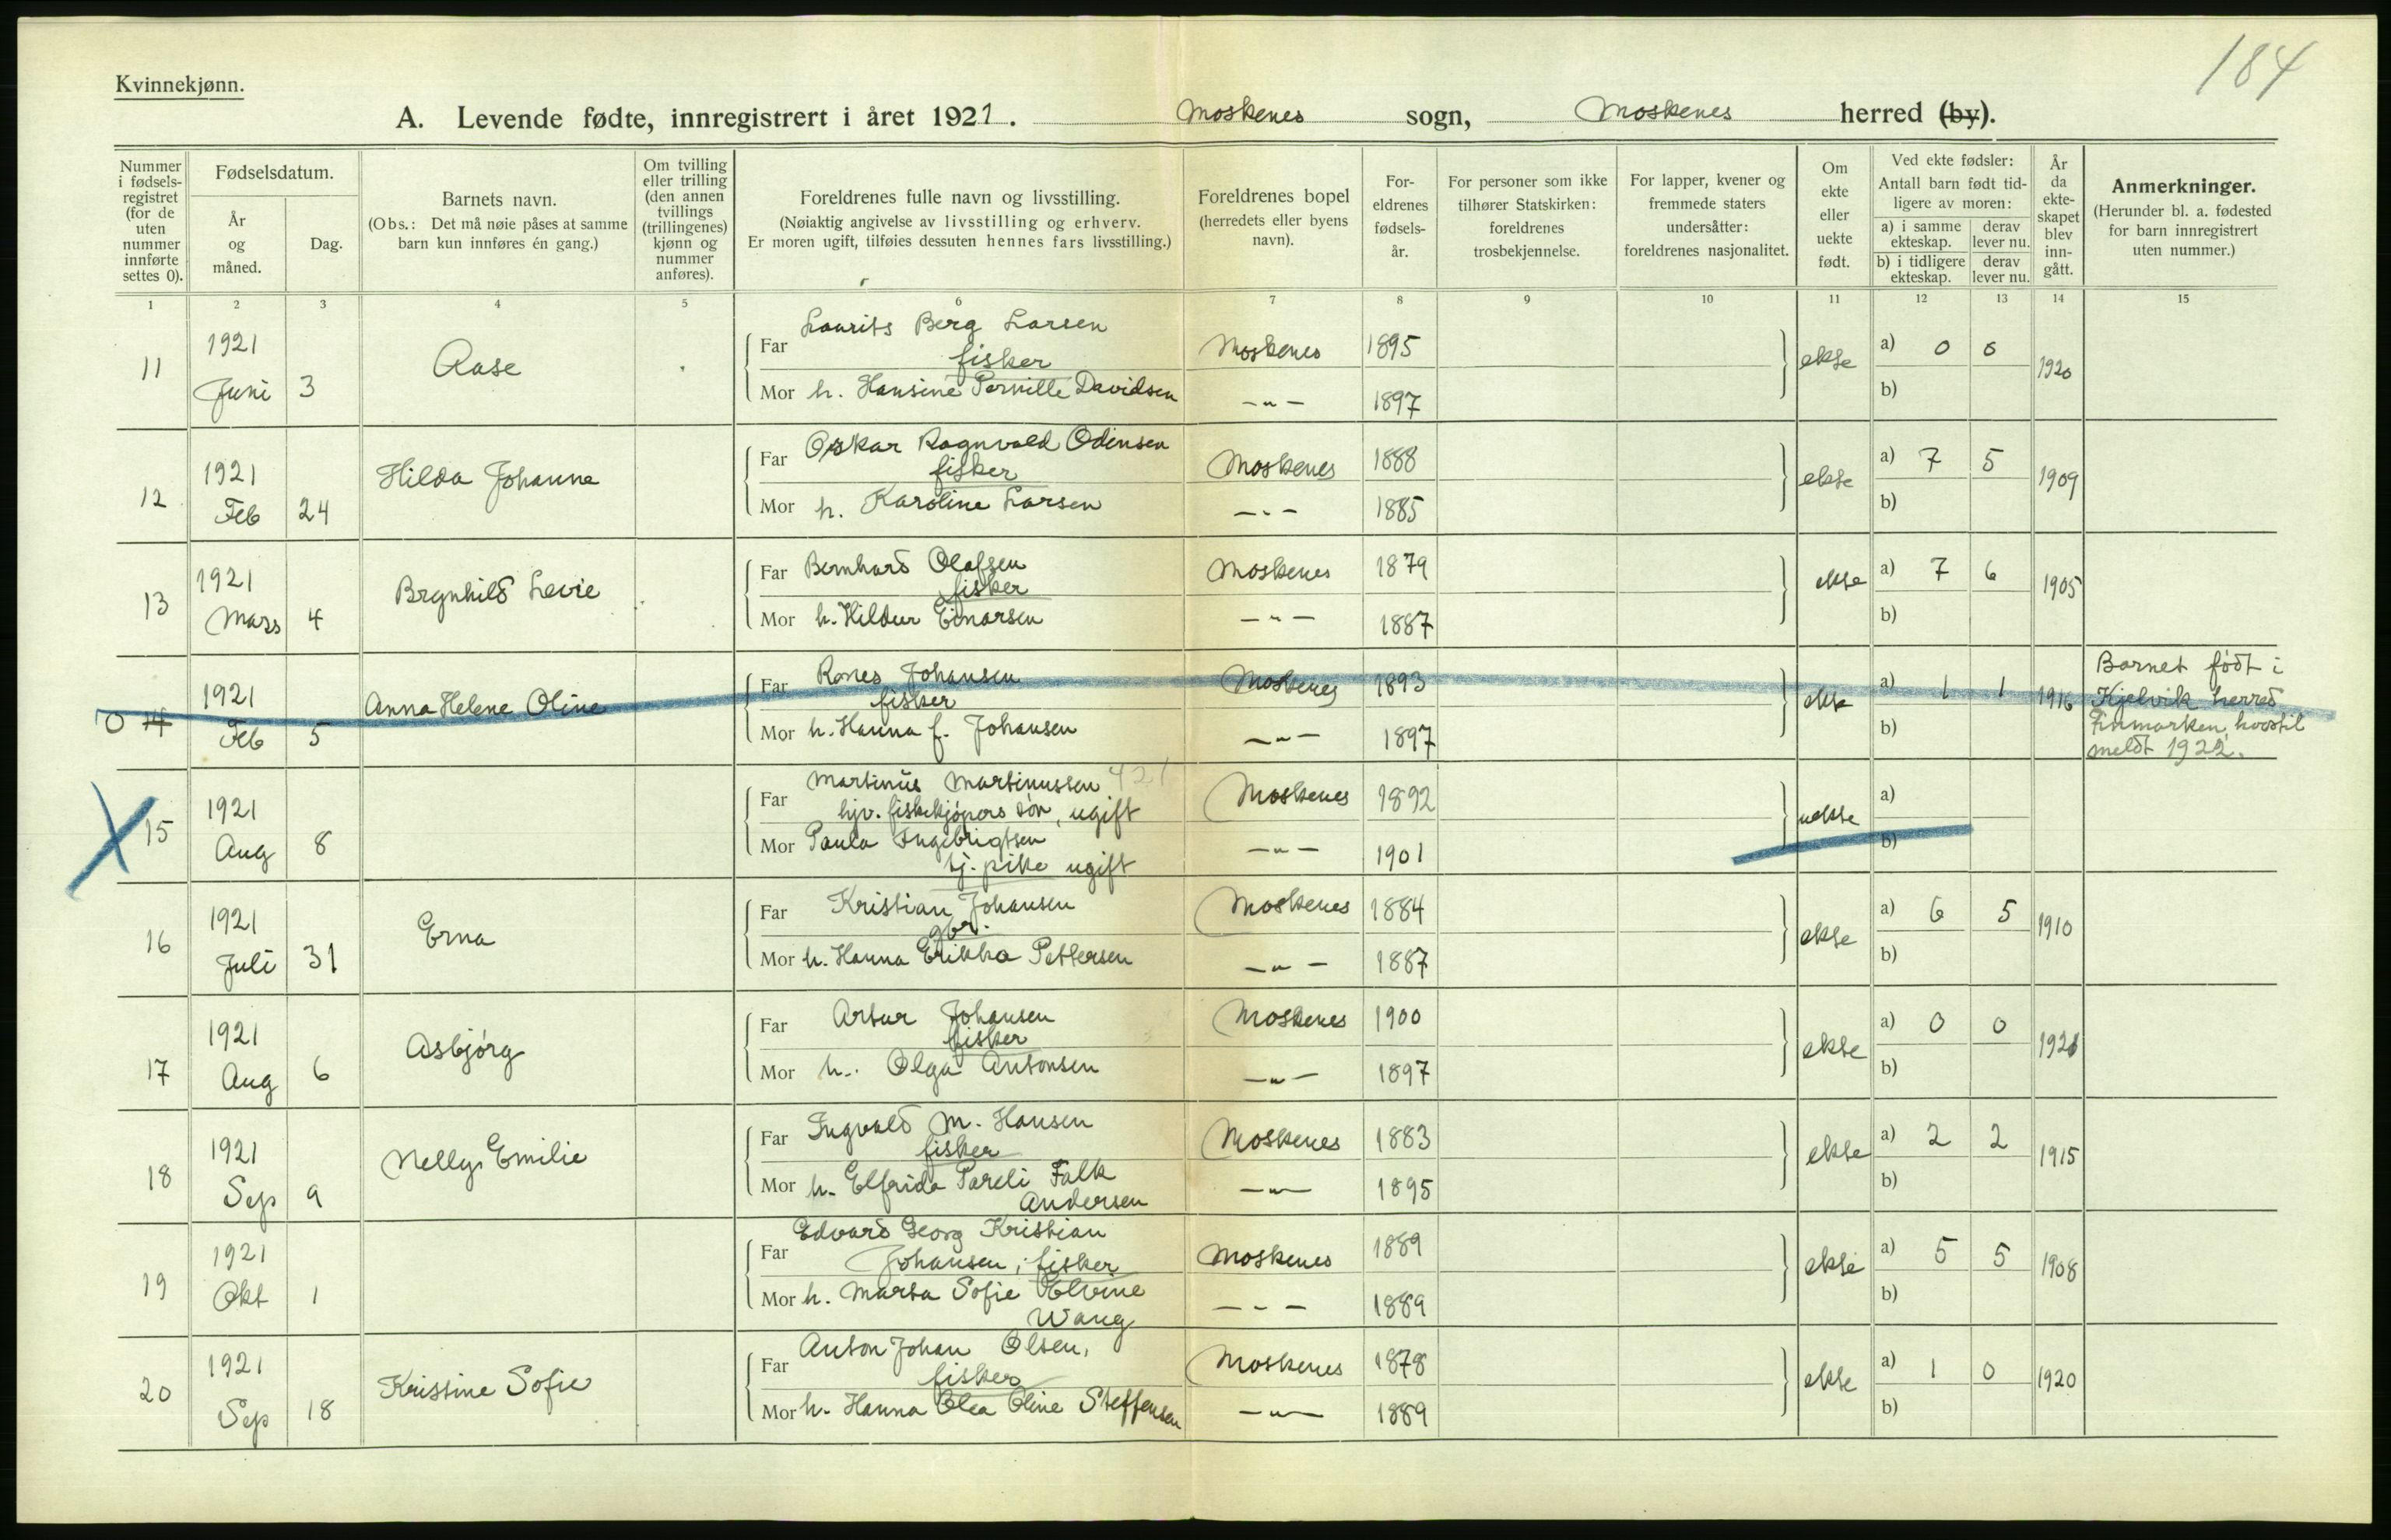 184
Kvinnekjønn.
A. Levende fødte, innregistrert i året 1921. Moskenes sogn, Moskenes herred (by).
Nummer i fødsels-registret (for de uten nummer innførte settes 0).
Fødselsdatum.
År og måned.
Dag.
Barnets navn.
(Obs.: Det må nøie påses at samme barn kun innføres én gang.)
Om tvilling eller trilling (den annen tvillings (trillingenes) kjønn og nummer anføres).
Foreldrenes fulle navn og livsstilling.
(Nøiaktig angivelse av livsstilling og erhverv.
Er moren ugift, tilføies dessuten hennes fars livsstilling.)
Foreldrenes bopel
(herredets eller byens navn).
For-eldrenes fødsels-år.
For personer som ikke tilhører Statskirken: foreldrenes trosbekjennelse.
For lapper, kvener og fremmede staters undersåtter: foreldrenes nasjonalitet.
Om ekte eller uekte født.
Ved ekte fødsler:
Antall barn født tid-ligere av moren:
a) i samme ekteskap.
derav lever nu.
b) i tidligere ekteskap.
derav lever nu.
År da ekte-skapet blev inn-gått.
Anmerkninger.
(Herunder bl. a. fødested for barn innregistrert uten nummer.)
1 2 3 4 5 6 7 8 9 10 11 12 13 14 15
11 1921 Juni 3 Aase
Far Laurits Berg Larsen fisker Moskenes 1895 ekte a) 0 0 1920
Mor h. Hansine Pernille Davidsen -"- 1897 b)
12 1921 Feb 24 Hilda Johanna
Far Oskar Ragnvald Odinsen fisker Moskenes 1888 ekte a) 7 5 1909
Mor h. Karoline Larsen -"- 1885 b)
13 1921 Mars 4 Brynhild Levie
Far Bernhard Olafsen fisker Moskenes 1879 ekte a) 7 6 1905
Mor h. Hildur Einarsen -"- 1887 b)
0 14 1921 Feb 5 Anna Helene Oline
Far Rones Johansen fisker Moskenes 1893 ekte a) 1 1 1916
Mor h. Hanna f. Johansen -"- 1897 b)
Barnet født i
Kjelvik herred
Finmarken, hvortil
meldt 1922.
15 1921 Aug 8
Far Martinus Martinussen 421
hjv. fiskekjøpers søn, ugift Moskenes 1892 uekte a)
Mor Paula Ingebrigtsen
tj. pike ugift -"- 1901 b)
16 1921 Juli 31 Erna
Far Kristian Johansen gbr. Moskenes 1884 ekte a) 6 5 1910
Mor h. Hanna Erikka Pettersen -"- 1887 b)
17 1921 Aug 6 Asbjørg
Far Artur Johansen fisker Moskenes 1900 ekte a) 0 0 1921
Mor h. Olga Antonsen -"- 1897 b)
18 1921 Sep 9 Nelly Emilie
Far Ingvald M. Hansen fisker Moskenes 1883 ekte a) 2 2 1915
Mor h. Elfrida Pareli Falk Andersen -"- 1895 b)
19 1921 Okt 1
Far Edvard Georg Kristian Johansen, fisker Moskenes 1889 ekte a) 5 5 1908
Mor h. Marta Sofie Elvine Wang -"- 1889 b)
20 1921 Sep 18 Kristine Sofie
Far Anton Johan Olsen, fisker Moskenes 1878 ekte a) 1 0 1920
Mor h. Hanna Olea Oline Steffensen -"- 1889 b)